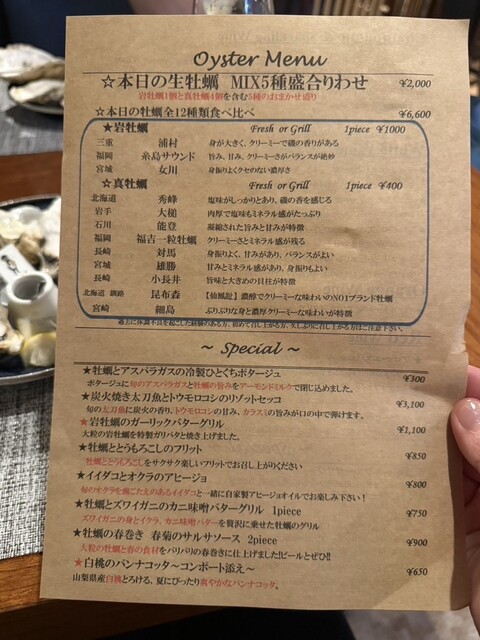 Oyster Menu
☆本日の生牡蠣 MIX5種盛合りわせ ¥2,000
岩牡蠣1個と真牡蠣4個を含む5種のおまかせ盛り
☆本日の牡蠣全12種類食べ比べ ¥6,600
★岩牡蠣 Fresh or Grill 1piece ¥1000
三重 浦村 身が大きく、クリーミーで磯の香りがある
福岡 糸島サウンド 旨み、甘み、クリーミーさがバランスが絶妙
宮城 女川 身振りよくクセのない濃厚さ
★真牡蠣 Fresh or Grill 1piece ¥400
北海道 秀峰 塩味がしっかりあり、磯の香を感じる
岩手 大槌 肉厚で塩味もミネラル感がたっぷり
石川 能登 凝縮された旨みと甘みが特徴
福岡 福吉一粒牡蠣 クリーミーさとミネラル感が残る
長崎 対馬 身振りよく、甘みがあり、バランスがよい
宮城 雄勝 甘みとミネラル感があり、身振りもよい
長崎 小長井 旨味と大きめの貝柱が特徴
北海道 釧路 昆布森 【仙鳳趾】濃醇でクリーミーな味わいのNO1ブランド牡蠣
宮崎 細島 ぷりぷりな身と濃厚クリーミーな味わいが特徴
過去に体調不良を起こした経験のある方、初めて召し上がる方、久しぶりに召し上がる方はご注意下さい。
~ Special ~
★牡蠣とアスパラガスの冷製ひとくちポタージュ ¥300
ポタージュに旬のアスパラガスと牡蠣の旨みをアーモンドミルクで閉じ込めました。
★炭火焼き太刀魚とトウモロコシのリゾットセッコ ¥3,100
旬の太刀魚に炭火の香り、トウモロコシの甘み、カラスミの旨みが口の中で弾けます。
★岩牡蠣のガーリックバターグリル ¥1,100
大粒の岩牡蠣を特製ガリバタと焼き上げました。
★牡蠣ととうもろこしのフリット ¥850
牡蠣ととうもろこしをサクサク楽しいフリットでお召し上がりください
★イイダコとオクラのアヒージョ ¥800
旬のオクラを歯ごたえのあるイイダコと一緒に自家製アヒージョオイルでお楽しみ下さい！
★牡蠣とズワイガニのカニ味噌バターグリル 1piece ¥750
ズワイガニの身とイクラ、カニ味噌バターを贅沢に乗せた牡蠣のグリル
★牡蠣の春巻き 春菊のサルサソース 2piece ¥900
大粒の牡蠣と春の食材をパリパリの春巻きに仕上げました!ビールとぜひ!!
★白桃のパンナコッタ～コンポート添え～ ¥650
山梨県産白桃とろける、夏にぴったり爽やかなパンナコッタ。